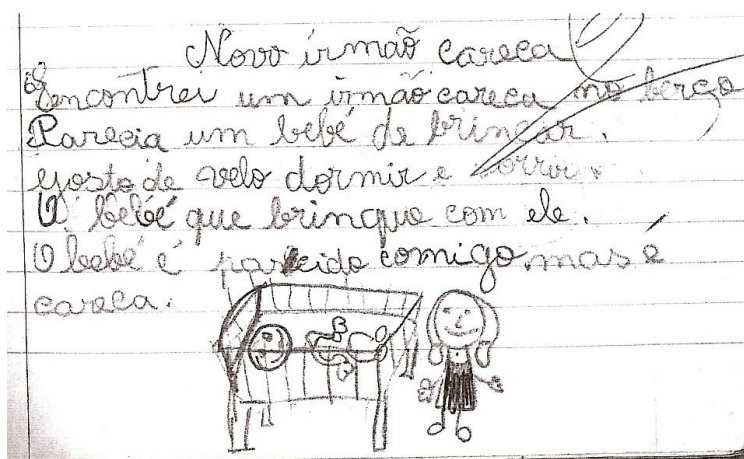 Novo irmão careca
Encontrei um irmão careca no berço
Parecia um bebé de brincar.
Gosto de velo dormir e sorrir.
O bebé que brinque com ele.
O bebé é parecido comigo, mas é
careca.